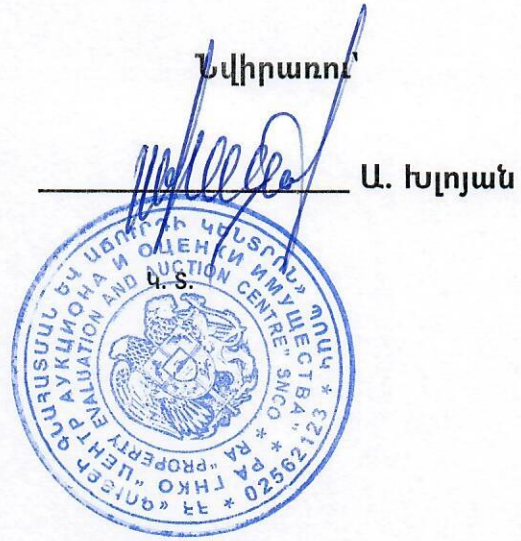 Նվիրառու՝
Ա. Խլոյան
Կ. Տ.
ՀՀ «ԳՈՒՅՔԻ ԳՆԱՀԱՏՄԱՆ ԵՎ ԱՃՈՒՐԴԻ ԿԵՆՏՐՈՆ» ՊՈԱԿ * 02562123 *
РА ГНКО "ЦЕНТР АУКЦИОНА И ОЦЕНКИ ИМУЩЕСТВА" *
RA "PROPERTY EVALUATION AND AUCTION CENTRE" SNCO *